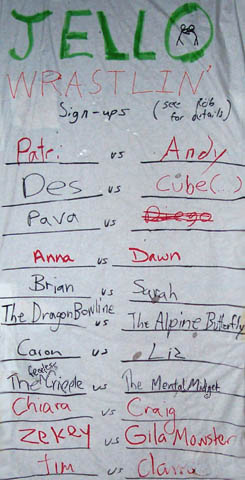 JELLO
WRASTLIN'
Sign-ups (see Rob for details)
Patri vs Andy
Des vs Cube(...)
Pava vs Diego
Anna vs Dawn
Brian vs Sarah
The Dragon Bowline vs The Alpine Butterfly
Caron vs Liz
The Cripple vs The Mental Midget
Chiara vs Craig
Zekey vs Gila Monster
Tim vs